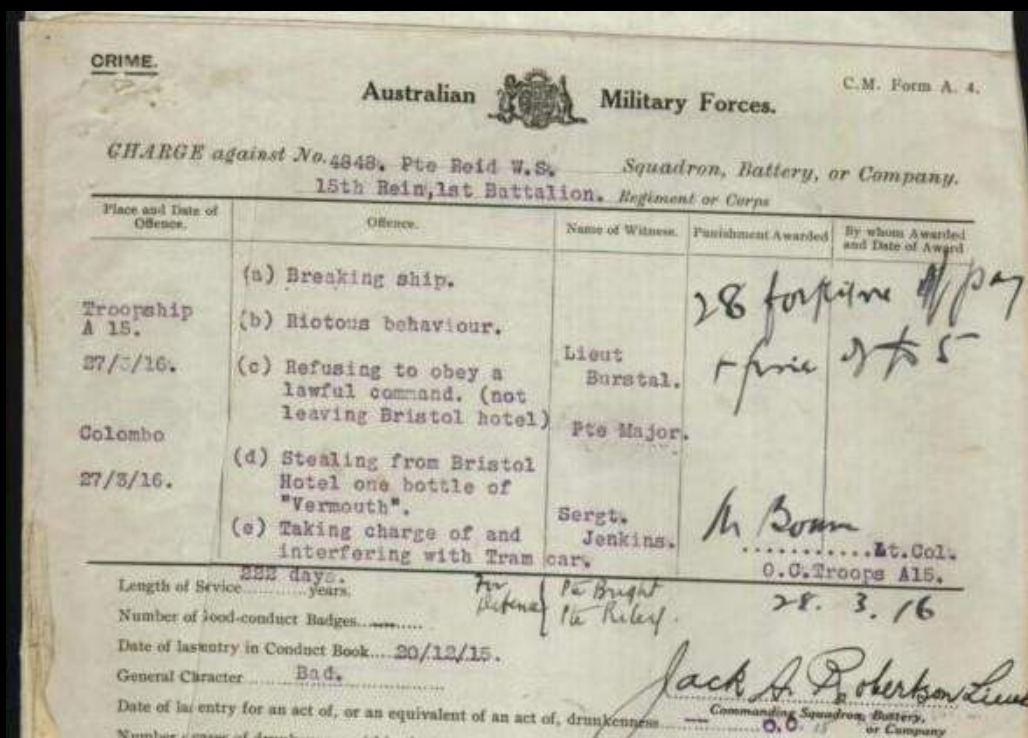 CRIME.
C.M. Form A. 4.
Australian Military Forces.
CHARGE against No. 4848. Pte Reid W.S. Squadron, Battery, or Company.
15th Rein, 1st Battalion. Regiment or Corps
Place and Date of Offence.
Offence.
Name of Witness.
Punishment Awarded
By whom Awarded and Date of Award
Troopship
A 15.
27/3/16.
Colombo
27/3/16.
(a) Breaking ship.
(b) Riotous behaviour.
(c) Refusing to obey a
lawful command. (not
leaving Bristol hotel)
(d) Stealing from Bristol
Hotel one bottle of
"Vermouth".
(e) Taking charge of and
interfering with Tram car.
Lieut
Burstal.
Pte Major.
Sergt.
Jenkins.
28 pay
+ fine of 5
Lt.Col.
O.C.Troops A15.
28. 3. 16
Length of Srvice 222 days. years.
For Defence Pte Bright
Pte Riley.
Number of ood-conduct Badges
Date of las ntry in Conduct Book 20/12/15.
General C racter Bad.
Jack A. Robertson Lieu
Date of la entry for an act of, or an equivalent of an act of, drunkenness —
Commanding Squadron, Battery,
O.C. or Company